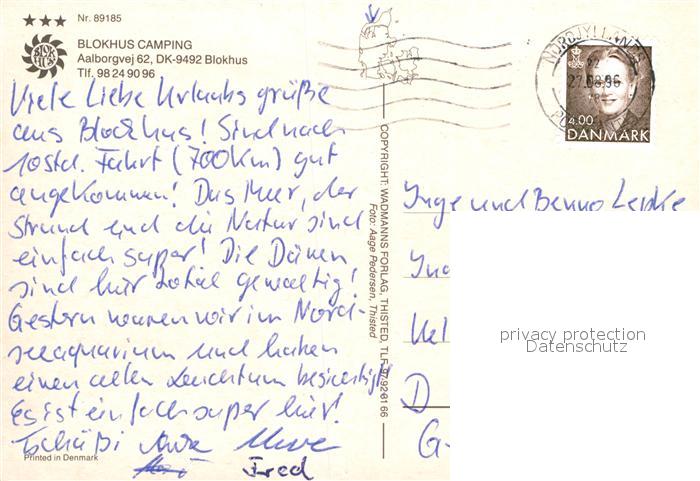 Nr. 89185
BLOKHUS CAMPING
Aalborgvej 62, DK-9492 Blokhus
Tlf. 98 24 90 96
Viele Liebe Urlaubsgrüße
aus Blockhus! Sind nach
10std. Fahrt (700Km) gut
angekommen! Das Meer, der
Strand und die Natur sind
einfach super! Die Dänen
sind hier total gewaltig!
Gestern waren wir im Nord-
seeaquarium und haben
einen alten Leuchtturm besichtigt
Es ist einfach super hier!
Tschüßi
Fred
Printed in Denmark
COPYRIGHT: WADMANNS FORLAG, THISTED, TLF. 97 92 01 66
Foto: Aage Pedersen, Thisted
NORDJYLLANDS
27.08.96
4.00
DANMARK
Inge und Benno
D
G-
privacy protection
Datenschutz